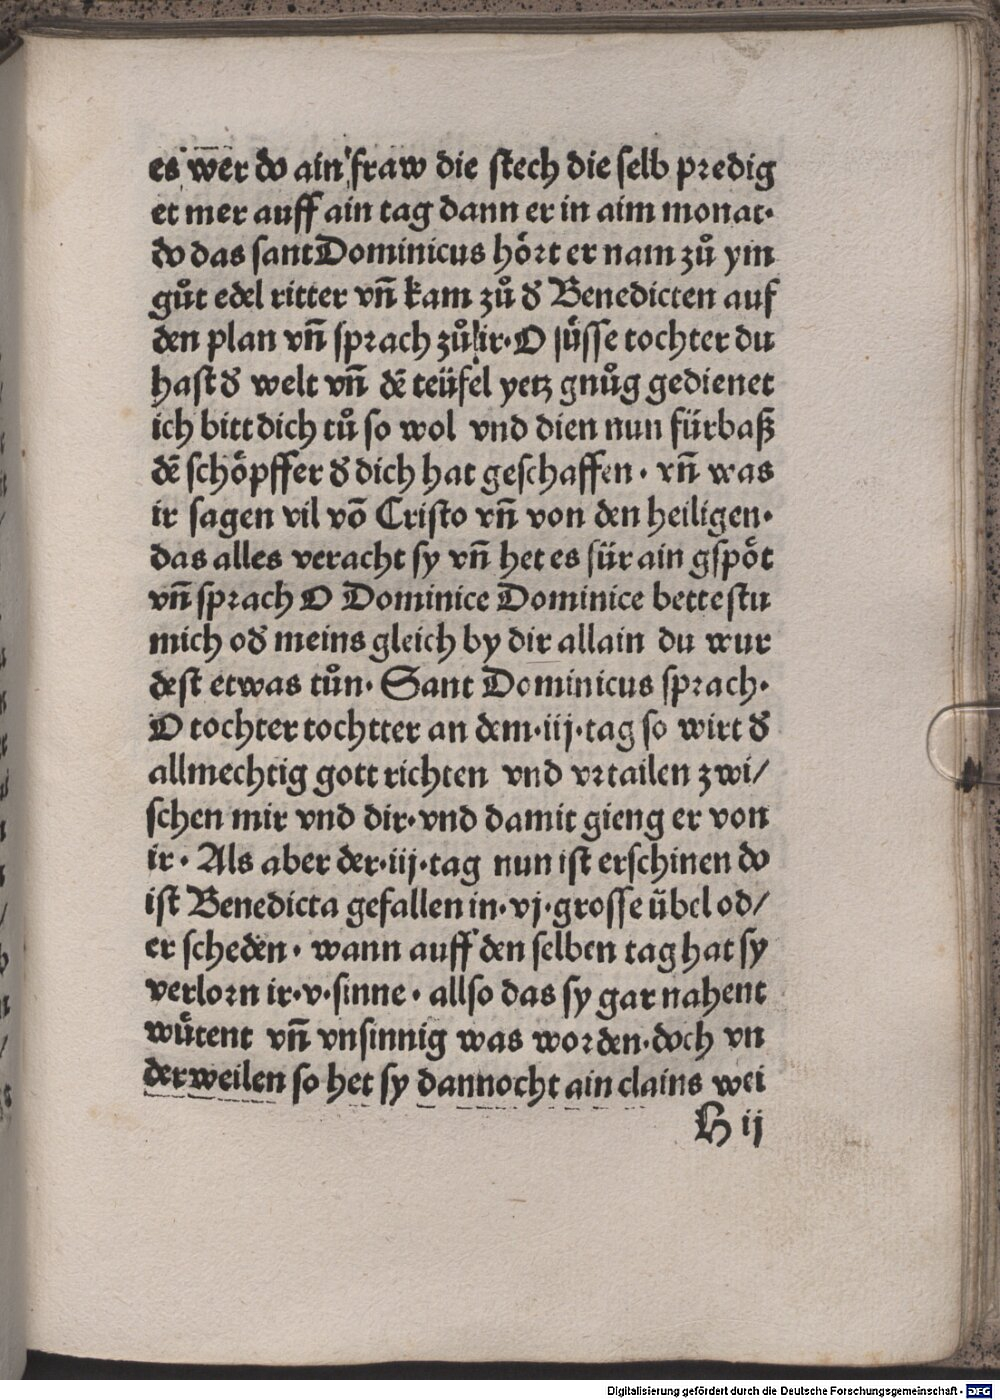 es wer do ain fraw die stech die selb predig
et mer auff ain tag dann er in aim monat·
do das sant Dominicus hoͤrt er nam zuͦ ym
guͦt edel ritter vñ kam zuͦ đ Benedicten auf
den plan vñ sprach zuͦ ir· O suͤsse tochter du
hast đ welt vñ dē teüfel yetz gnuͦg gedienet
ich bitt dich tuͦ so wol vnd dien nun fürbaß
dē schoͤpffer đ dich hat geschaffen · vñ was
ir sagen vil vō Cristo vñ von den heiligen·
das alles veracht sy vñ het es für ain gspoͤt
vñ sprach O Dominice Dominice bettestu
mich ođ meins gleich by dir allain du wur
dest etwas tuͦn· Sant Dominicus sprach·
O tochter tochtter an dem·iij·tag so wirt đ
allmechtig gott richten vnd vrtailen zwi/
schen mir vnd dir·vnd damit gieng er von
ir· Als aber der·iij·tag nun ist erschinen do
ist Benedicta gefallen in·vj·grosse übel od/
er scheden· wann auff den selben tag hat sy
verlorn ir·v·sinne· allso das sy gar nahent
wuͤtent vñ vnsinnig was worden·doch vn
der weilen so het sy dannocht ain clains wei
H ij
Digitalisierung gefördert durch die Deutsche Forschungsgemeinschaft - DFG